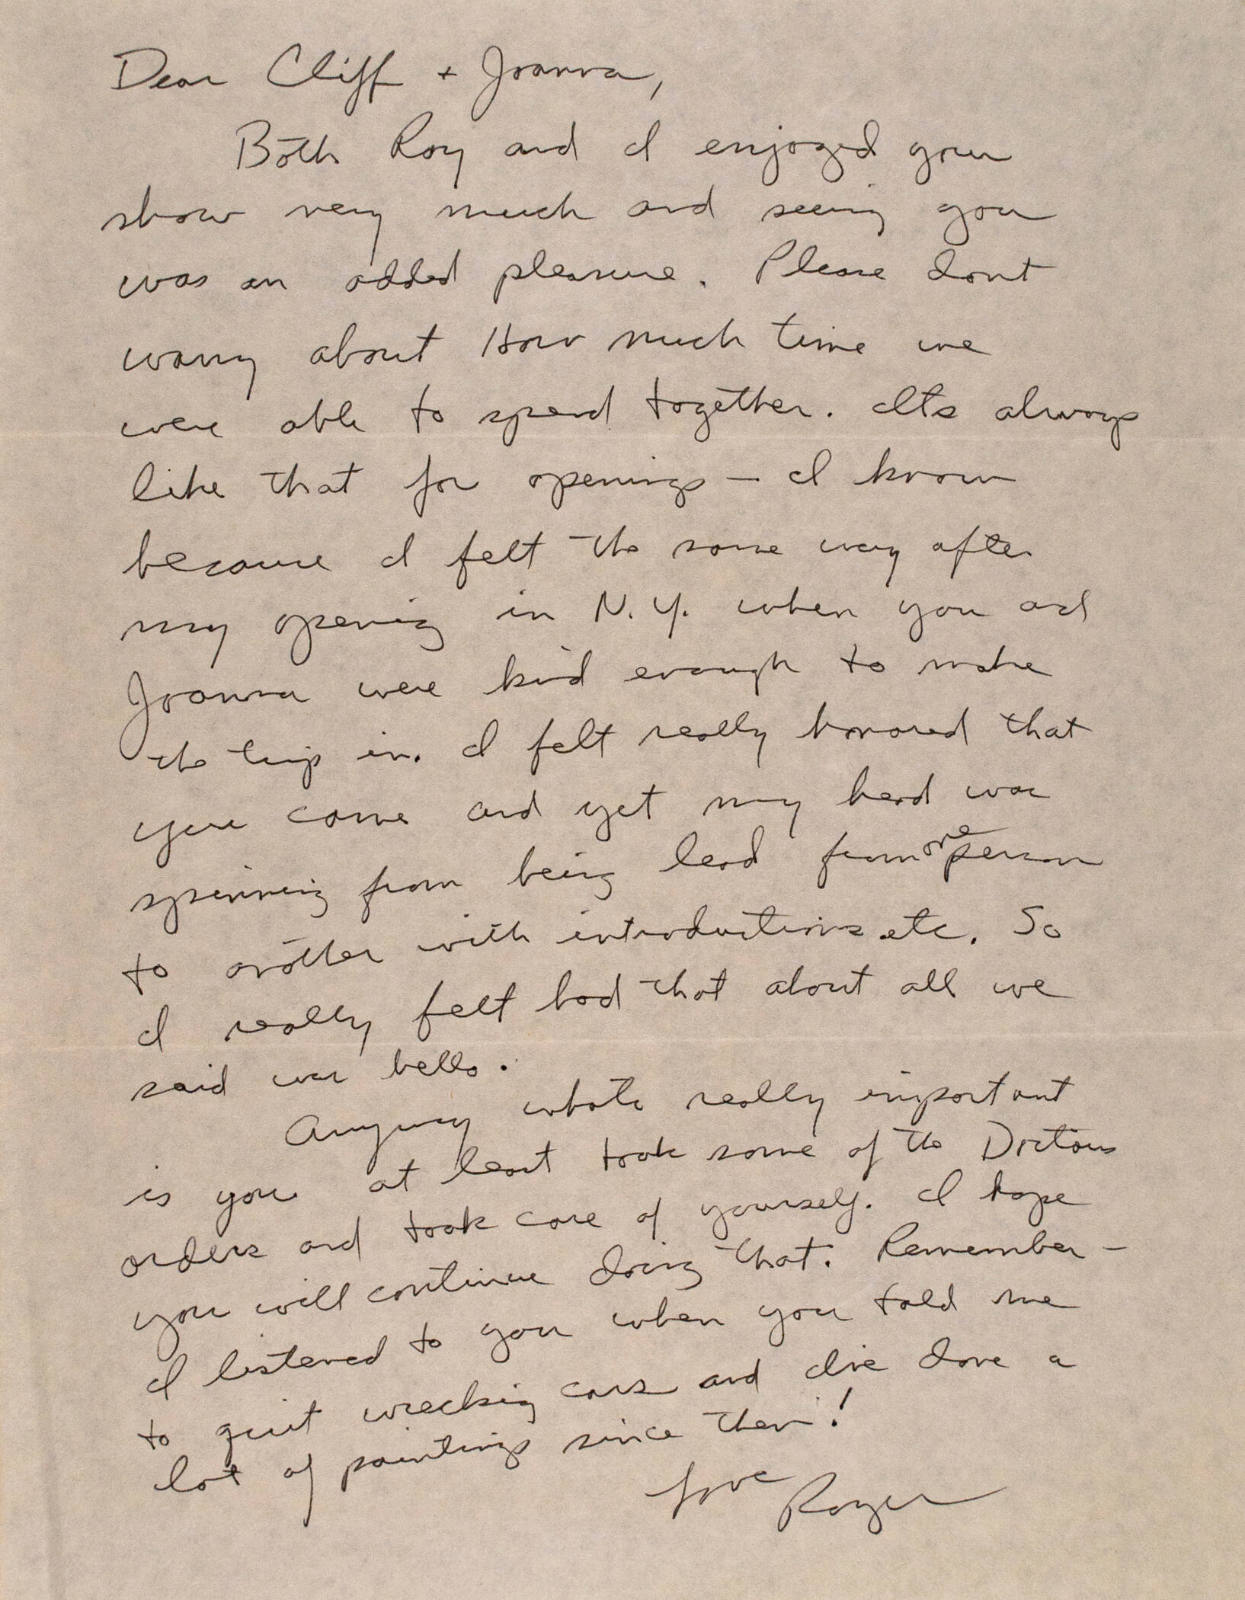 Dear Cliff + Joanna,
Both Roy and I enjoyed your
show very much and seeing you
was an added pleasure. Please dont
worry about How much time we
were able to spend together. Its always
like that for openings — I know
because I felt the same way after
my opening in N.Y. when you and
Joanna were kind enough to make
the trip in. I felt really honored that
you came and yet my head was
spinning from being lead from one person
to another with introductions etc. So
I really felt bad that about all we
said was hello.
Anyway whats really important
is you at least took some of the Doctors
orders and took care of yourself. I hope
you will continue doing that. Remember —
I listened to you when you told me
to quit wrecking cars and Ive done a
lot of paintings since then!
Love
Roger